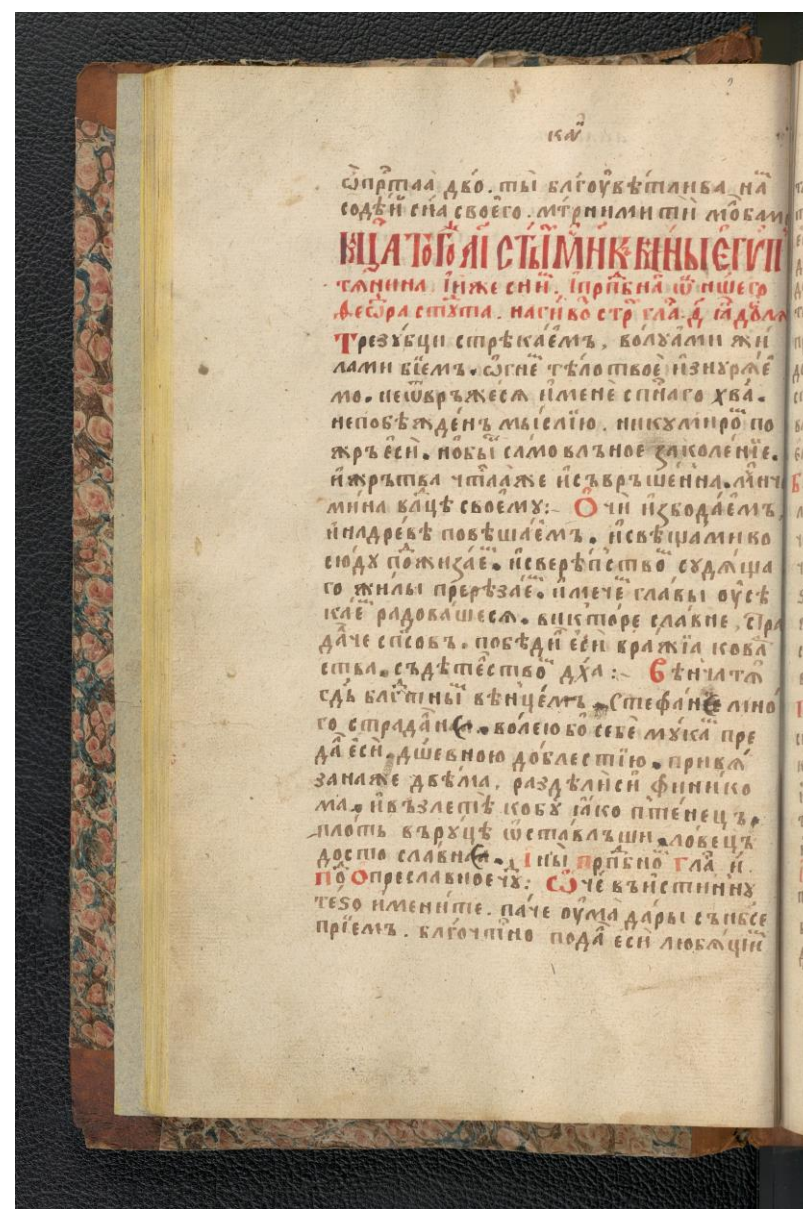 ѡпрⷭ҇таа дв҃о. ты бл҃гоувѣтлива на
содѣй сн҃а своего. мт҃рними тй мл҃бам
мц҃а тогоⷤ аі ст҃ыⷯ мⷱ҇нкъ мины єгѵп
тѧнина инже сниⷨ. ипрпⷣбна ѿ ншего
ѳеѡⷣра стꙋдита. на гй во стрⷯ гла д҃ ꙗ доблѧ
Трезꙋбци стрѣкаемъ, волꙋами жи
лами бїемъ. ѡгнеⷨ тѣло твое изнурѧе
мо. неѿвръжесѧ имене сп҃наго хв҃а.
непобѣжденъ мыслїю. никꙋмироⷨ по
жръ еси. новый самовлъное заколенїе.
и жрътва чтⷭ҇аꙗже и съвръшенна. мⷱ҇нч
мина влⷣцѣ своемꙋ: Очи избодаемъ,
и на древѣ повѣшаемъ. и свѣщами во
сюдꙋ пожизаеⷨ. и сверѣпствоⷨ сꙋдѧща
го жилы прерѣзаеⷨ. и мечеⷨ главы оусѣ
каеⷨ радовашесѧ. викторе славне, стра
даⷧче сп҃совъ. победи еси вражїа кова
ства. съдѣтеⷧствоⷨ дх҃а: Вѣнчатѧ
гд҇ь бл҃гтⷣныⷨ вѣнцемъ. Стефаниⷣе мно
го страдаⷧнаѧ. волею бо себе мꙋкаⷨ пре
дала еси. дш҃евною доблестїю. привѧ
занаже двѣма, раздѣлиси финико
ма. и възлетѣ ко бг҃ꙋ ꙗко птенецъ.
плоть върꙋцѣ ѡставлъши ловецъ
досто славнаѧ. Ины прпⷣбноⷨ гла и
поⷣ О преславное чю: Ѡче въистиннꙋ
тезоименните. паче оума дары сън҃бсе
прїемъ. бл҃гочтⷭ҇но подаⷧ еси любѧщиⷨ